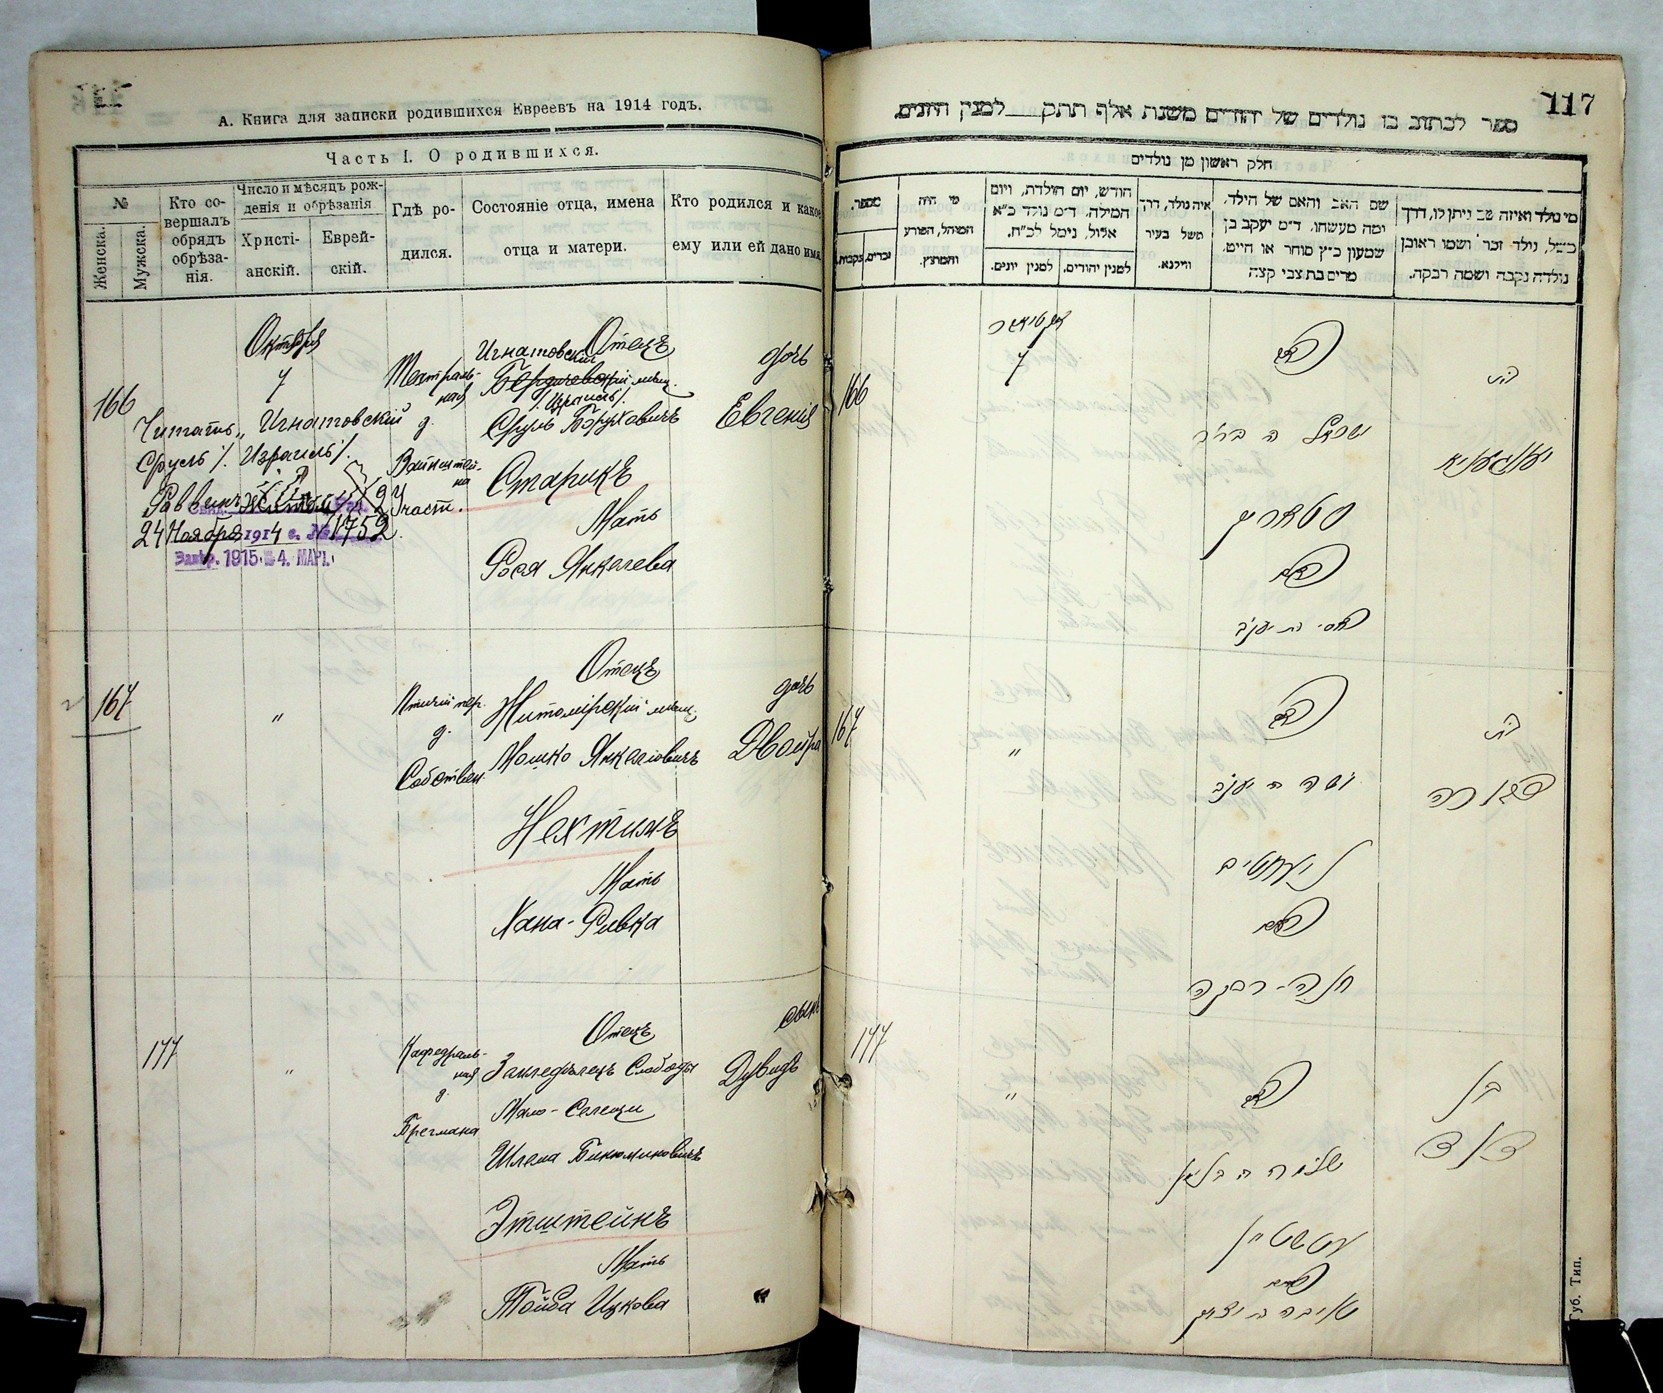 А. Книга для записки родившихся Евреевъ на 1914 годъ.
Часть I. О родившихся.
№
Женска.
Мужска.
Кто совершалъ обрядъ обрѣзанія.
Число и мѣсяцъ рожденія и обрѣзанія
Христіанскій.
Еврейскій.
Гдѣ родился.
Состояніе отца, имена отца и матери.
Кто родился и какое ему или ей дано имя
166
Октября
7
Театральная
д.
Вайнштейна
2 участ.
Отецъ
Игнатовскій
Бердичевскій мѣщ.
/. Израиль/.
Сруль Борухович
Старикъ
Мать
Рося Янкелева
дочь
Евгенія
Читать „Игнатовскій
Сруель /. Израиль/.
Раввинъ
24 Ноября 1914 г. № 1752
1915 4. МАР.
167
"
Птичій пер.
д.
Собствен.
Отецъ
Житомірскій мѣщ.
Мошко Янкелевичъ
Нехтинъ
Мать
Хана-Ривка
дочь
Двойра
177
"
Кафедральная
д.
Брегмана
Отецъ
Землевлецъ Слободы
Мало-Селещи
Шлема Бинюминовичъ
Этштейнъ
Мать
Тойба Ицкова
сынъ
Дувидъ
117
ספר לכתוב בו נולדים של יהודים משנת אלף תתק למנין היונים
חלק ראשון מן נולדים
מספר.
זכרים.
נקבות.
מי היה המוהל, הפורע והמוצץ.
חודש, יום הולדת, ויום המילה. ד״מ נולד כ״א אלול, נימל לכ״ח.
למנין יונים.
למנין יהודים.
איה נולד, דרך משל בעיר ווילנא.
שם האב והאם של הילד. ומה מעשהו. ד״מ יעקב בן שמעון כ״ץ סוחר או חייט. מרים בת צבי קצה
מי נולד ואיזה שם ניתן לו, דרך משל, נולד זכר ושמו ראובן נולדה נקבה ושמה רבקה.
166
7
האב
סטאריק
האם
רוסי בת יעקב
בת
167
"
האב
משה ב יעקב
נעכטין
האם
חנה-רבקה
בת
דבורה
177
"
האב
שלמה ב בנימין
עטשטיין
האם
טויבה ב יצחק
בן
דוד
Губ. Тип.